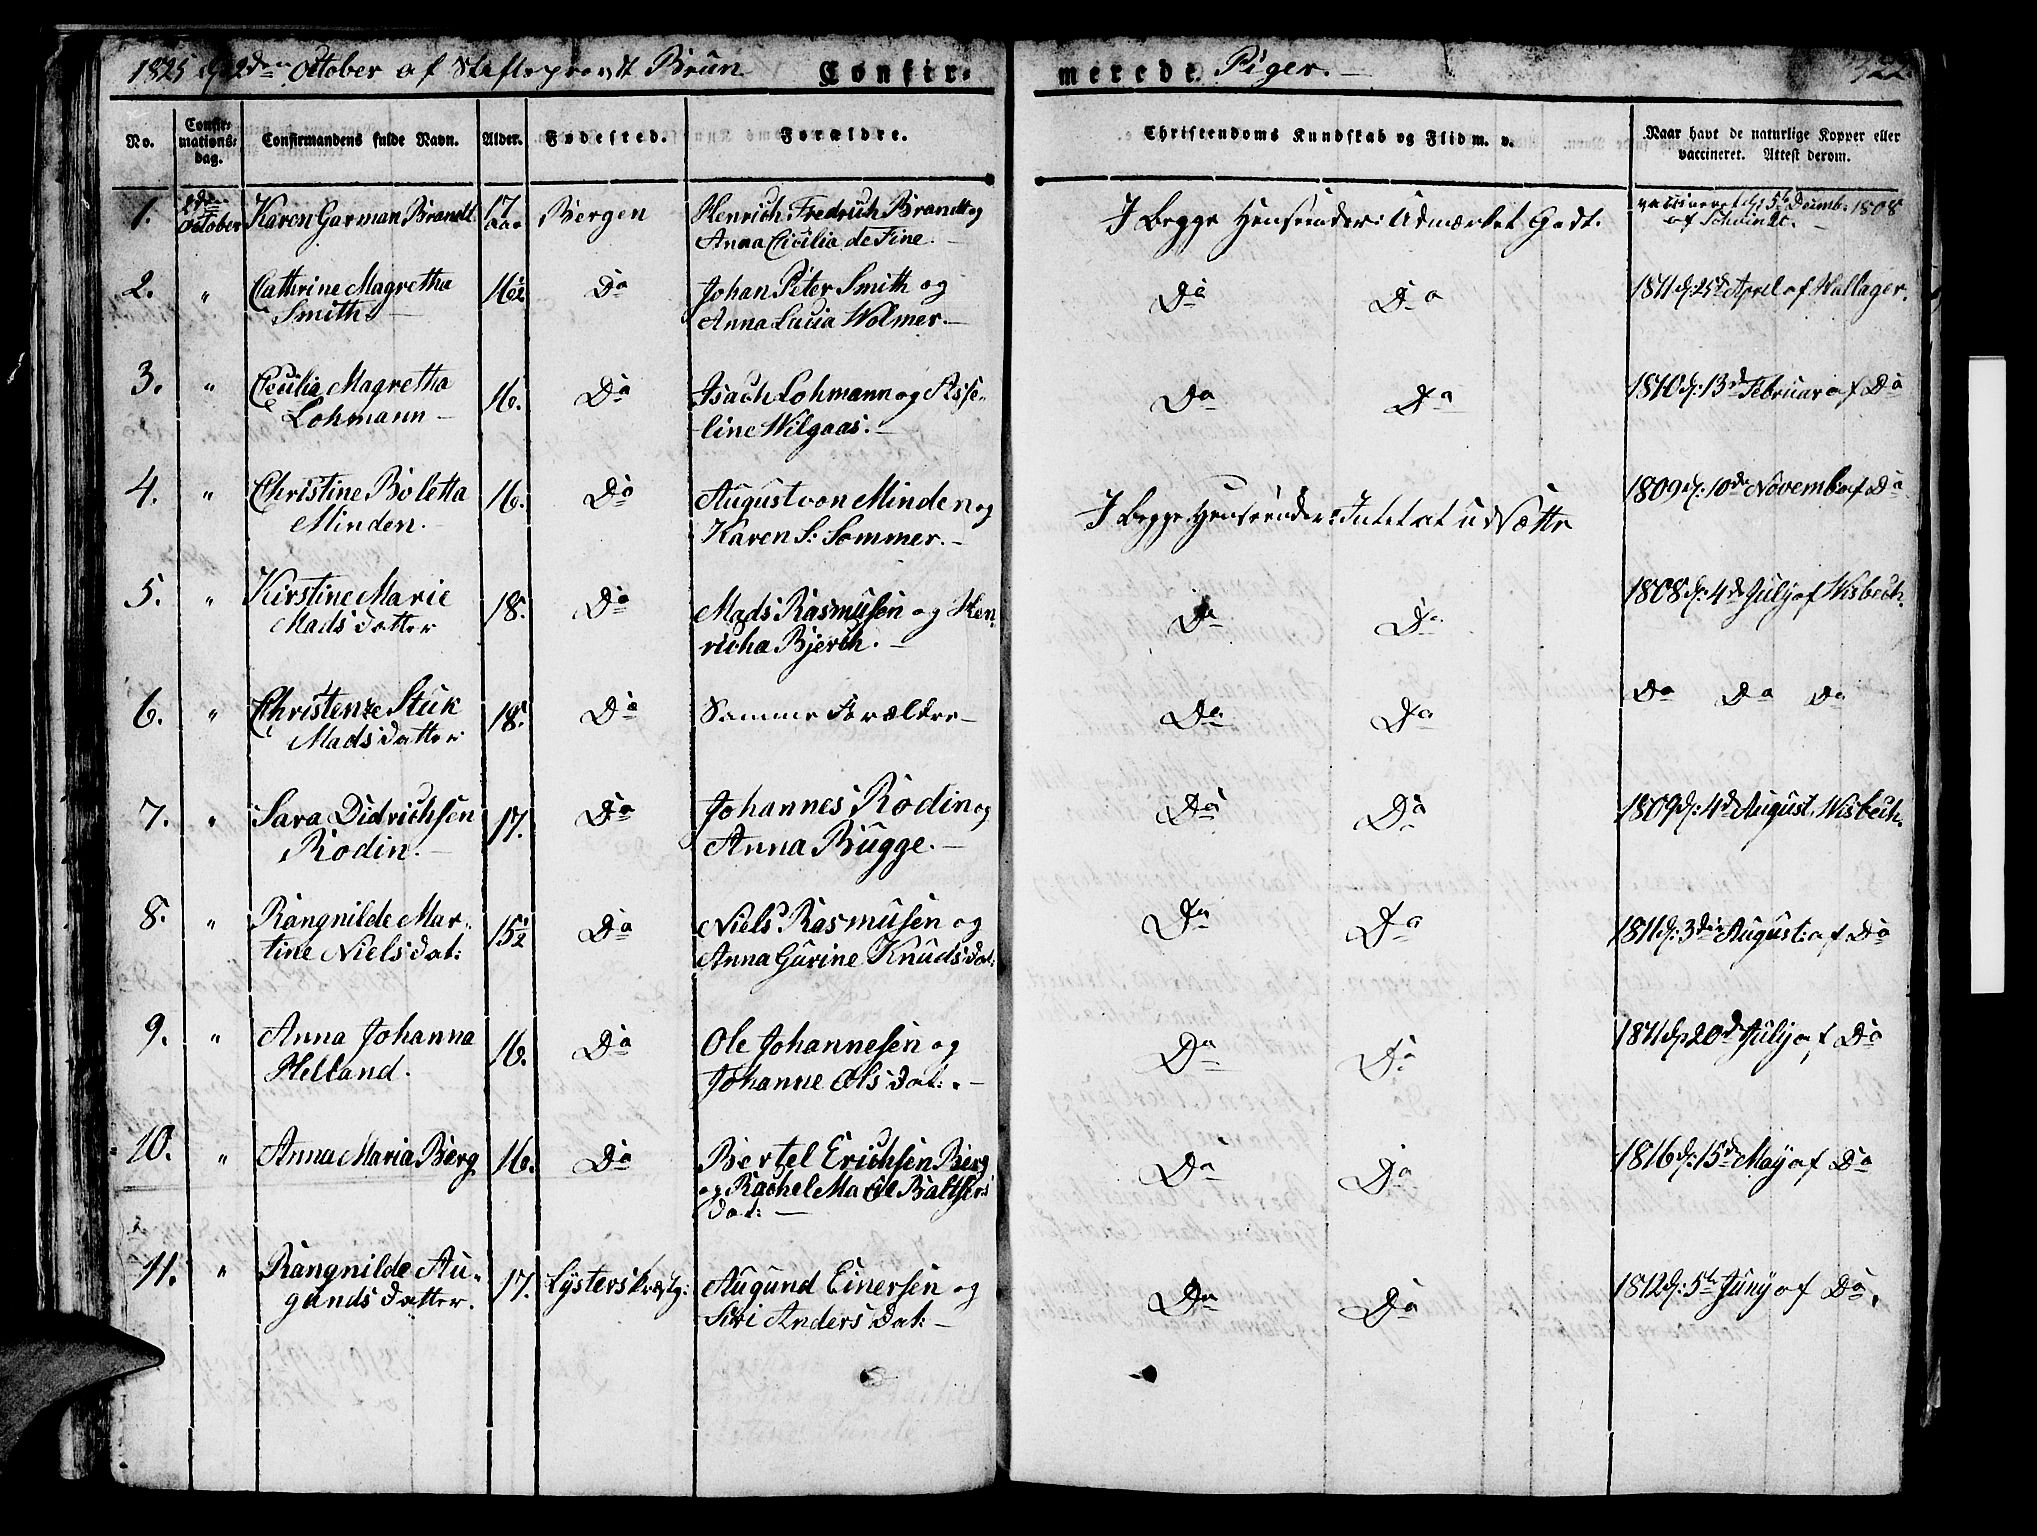 1825 d: 2den October af Stiftsprovst Brun Confir-
merede Piger.
No. Confir-mations-dag. Confirmandens fulde Navn. Alder. Fødested. Forældre. Christendoms Kundskab og Flid m. v. Naar havt de naturlige Kopper eller vaccineret. Attest derom.
1. 2den October Karen Garman Brandt 17 aar Bergen Henrich Fredrich Brandt og Anna Cicilia de Fine. I begge Henseender: Udmærket Godt. vaccineret d: 5te Decemb: 1808 af Schwindt.
2. " Cathrine Magretha Smith 16½ Do Johan Peter Smith og Anna Lucia Wolmer. Do Do 1811 d: 25de April af Wallager.
3. " Cecilia Magretha Lohmann 16. Do Isach Lohmann og Asse-line Wilgaas. Do Do 1810 d: 13de Februar af Do
4. " Christine Boletta Minden. 16. Do August von Minden og Karen S: Sommer. I begge Henseender: Intet at udsætte 1809 d: 10de Novemb: af Do
5. " Kirstine Marie Madsdatter 18. Do Mads Rasmusen og Hen-richa Bjerch. Do Do 1808 d: 4de July af Wisbech.
6. " Christenze Stuk Madsdatter 18. Do Samme Forældre Do Do Do Do Do
7. " Sara Didrichsen Rodin. 17. Do Johannes Rodin og Anna Bugge. Do Do 1809 d: 4de August, Wisbech.
8. " Rangnilde Mar-tine Nielsdat: 15½ Do Niels Rasmusen og Anna Gurine Knudsdat: Do Do 1811 d: 3die August: af Do
9. " Anna Johanna Helland. 16. Do Ole Johannesen og Johanne Olsdat: Do Do 1811 d: 20de July af Do
10. " Anna Maria Berg 16. Do Bertel Erichsen Berg og Rachel Marie Balthsers dat: Do Do 1816 d: 15de May af Do
11. " Rangnilde Au-gunds datter. 17. Lysters Præstg: Augund Einersen og Siri Andersdat: Do Do 1812 d: 5te Juny af Do.